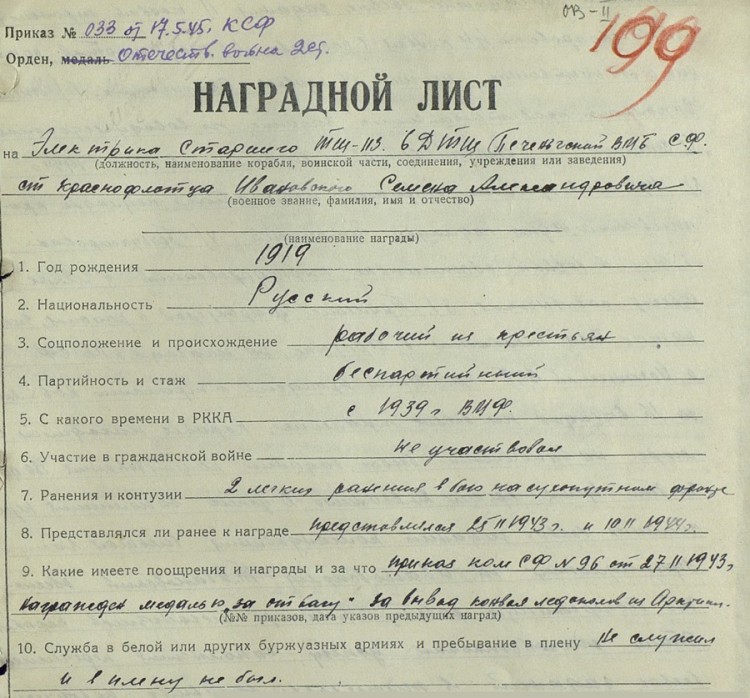 ОВ-II
199
Приказ № 033 от 17.5.45г. КСФ
Орден, медаль Отечеств. война 2 ст.
НАГРАДНОЙ ЛИСТ
на Электрика Старшего ТЩ-113. 6 ДТЩ Печенгской ВМБ СФ.
(должность, наименование корабля, воинской части, соединения, учреждения или заведения)
ст краснофлотца Ивановского Семена Александровича
(военное звание, фамилия, имя и отчество)
(наименование награды)
1. Год рождения 1919
2. Национальность Русский
3. Соцположение и происхождение рабочий из крестьян
4. Партийность и стаж беспартийный
5. С какого времени в РККА с 1939г ВМФ.
6. Участие в гражданской войне Не участвовал
7. Ранения и контузии 2 легких ранения в бою на сухопутном фронте
8. Представлялся ли ранее к награде представлялся 25 II 1943г. и 10 II 1944г.
9. Какие имеете поощрения и награды и за что приказ ком СФ N 96 от 27 II 1943г
награжден медалью „за отвагу" за вывод конвоя ледоколов из Арктики.
(№№ приказов, дата указов предыдущих наград)
10. Служба в белой или других буржуазных армиях и пребывание в плену Не служил
и в плену не был.